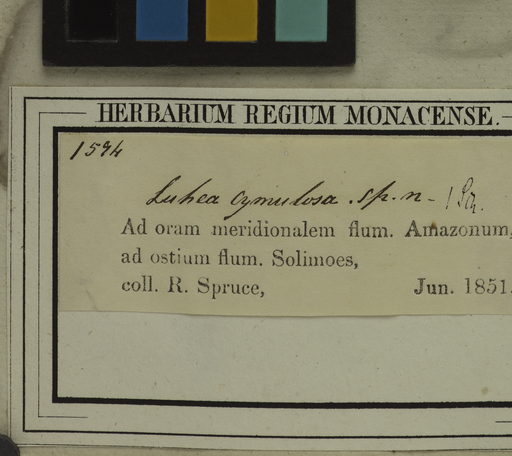 HERBARIUM REGIUM MONACENSE.
1594
Luhea cymulosa . sp. n. !
Ad oram meridionalem flum. Amazonum,
ad ostium flum. Solimoes,
coll. R. Spruce, Jun. 1851.